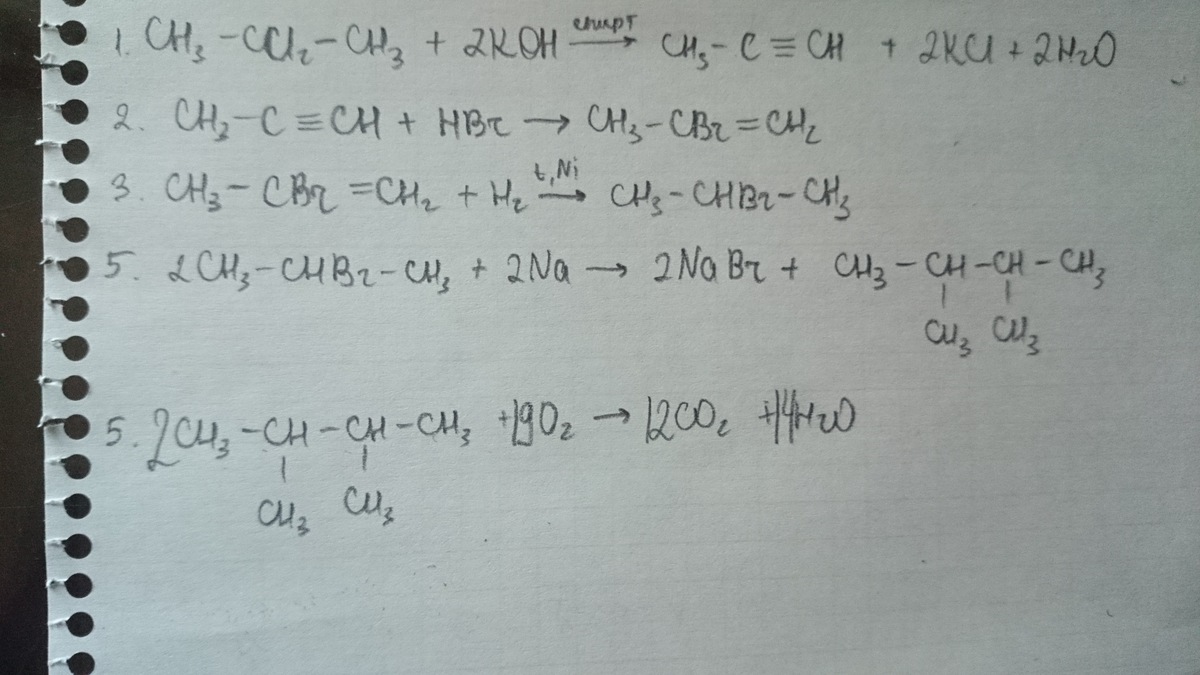 спирт
1. CH₃ – CCl₂ – CH₃ + 2KOH → CH₃ – C ≡ CH + 2KCl + 2H₂O
2. CH₃ – C ≡ CH + HBr → CH₃ – CBr = CH₂
t, Ni
3. CH₃ – CBr = CH₂ + H₂ → CH₃ – CHBr – CH₃
5. 2CH₃ – CHBr – CH₃ + 2Na → 2NaBr + CH₃ – CH – CH – CH₃
| |
CH₃ CH₃
5. 2CH₃ – CH – CH – CH₃ + 19O₂ → 12CO₂ + 14H₂O
| |
CH₃ CH₃